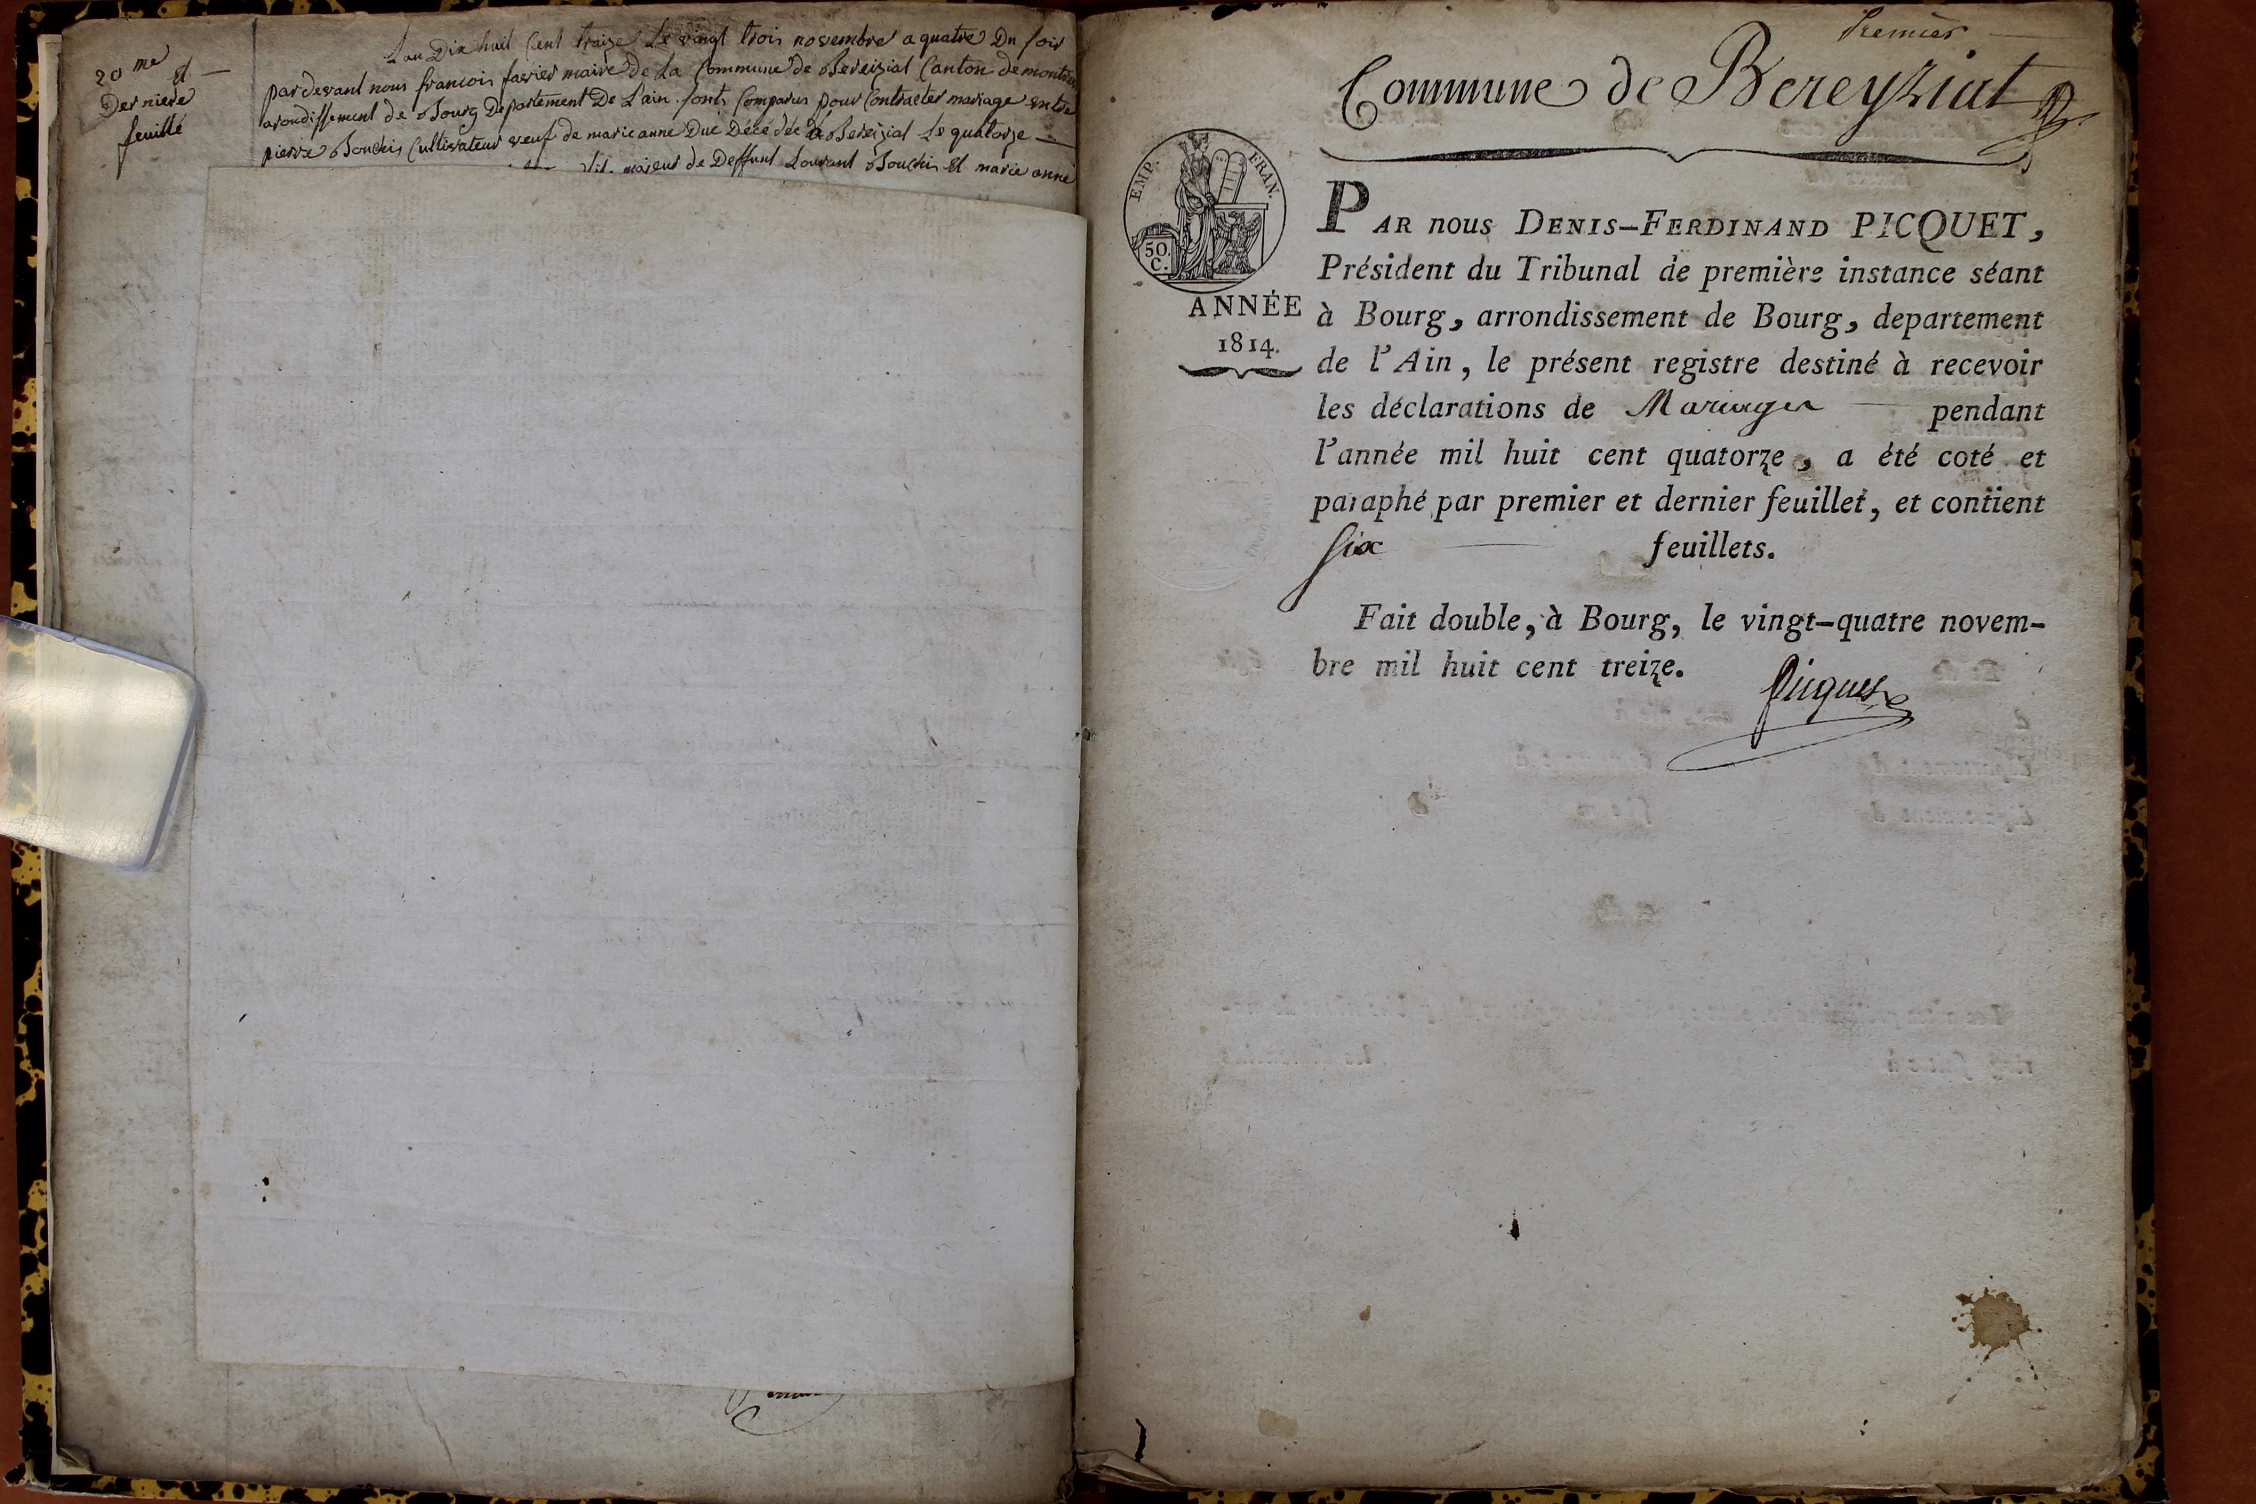 20me
et
Derniere
feuille
L'an Dix huit Cent traize Le vingt trois novembre a quatre Du soir
pardevant nous francois favier maire de La Commune de Bereizial Canton de
arondissement de Bourg Departement De L'ain. sont Comparus pour Contracter mariage entre
pierre Bouchis Cultivateur veuf de marie anne Due Décédée à Bereizial Le quatorze
majeur de Deffunt Lourant Bouchis Et marie anne
Premier
Commune de Bereyziat
EMP. FRAN.
50.
C.
ANNÉE
1814.
PAR nous DENIS-FERDINAND PICQUET,
Président du Tribunal de première instance séant
à Bourg, arrondissement de Bourg, departement
de l'Ain, le présent registre destiné à recevoir
les déclarations de Mariages pendant
l'année mil huit cent quatorze, a été coté et
paraphé par premier et dernier feuillet, et contient
six feuillets.
Fait double, à Bourg, le vingt-quatre novem-
bre mil huit cent treize.
Picquet